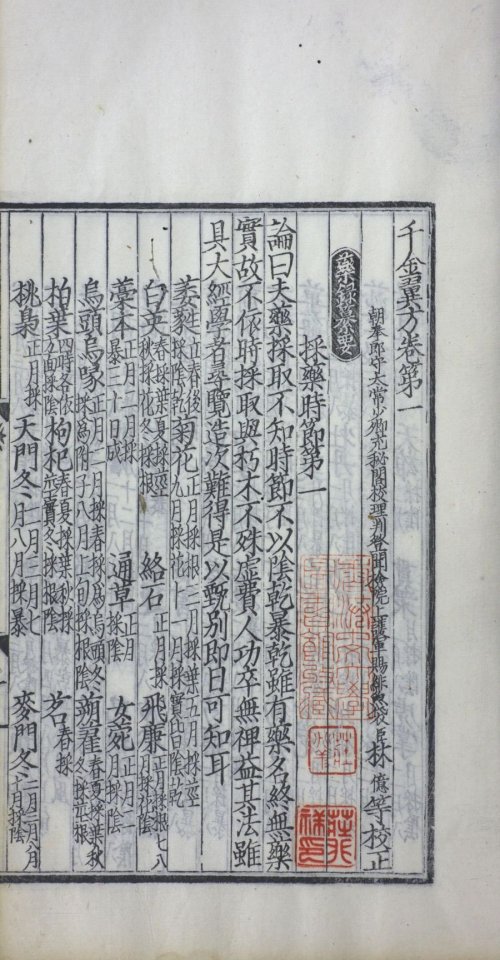 千金翼方卷第一
朝奉郎守太常少卿充秘閣校理判登聞檢院上護軍賜緋魚袋臣林 億等校正
藥錄纂要
採藥時節第一
論曰夫藥採取不知時節不以陰乾暴乾雖有藥名終無藥
實故不依時採取與朽木不殊虛費人功卒無裨益其法雖
具大經學者尋覽造次難得是以甄別即日可知耳
萎蕤立春後採陰乾 菊花正月採根三月採葉五月採莖九月採花十一月採實皆陰乾
白英春採葉夏採莖秋採花冬採根 絡石正月採 飛廉正月採根七八月採花陰
藁本正月二月採暴三十日成 通草正月採陰 女菀正月二月採陰
烏頭烏喙正月二月採春採爲烏頭冬採爲附子八月上旬採根陰 蒴藋春夏採葉秋冬採莖根
柏葉四時各依方面採陰 枸杞春夏採葉秋採莖實冬採根陰 茗春採
桃梟正月採 天門冬二月三月七月八月採暴 麥門冬二月三月八月十月採陰